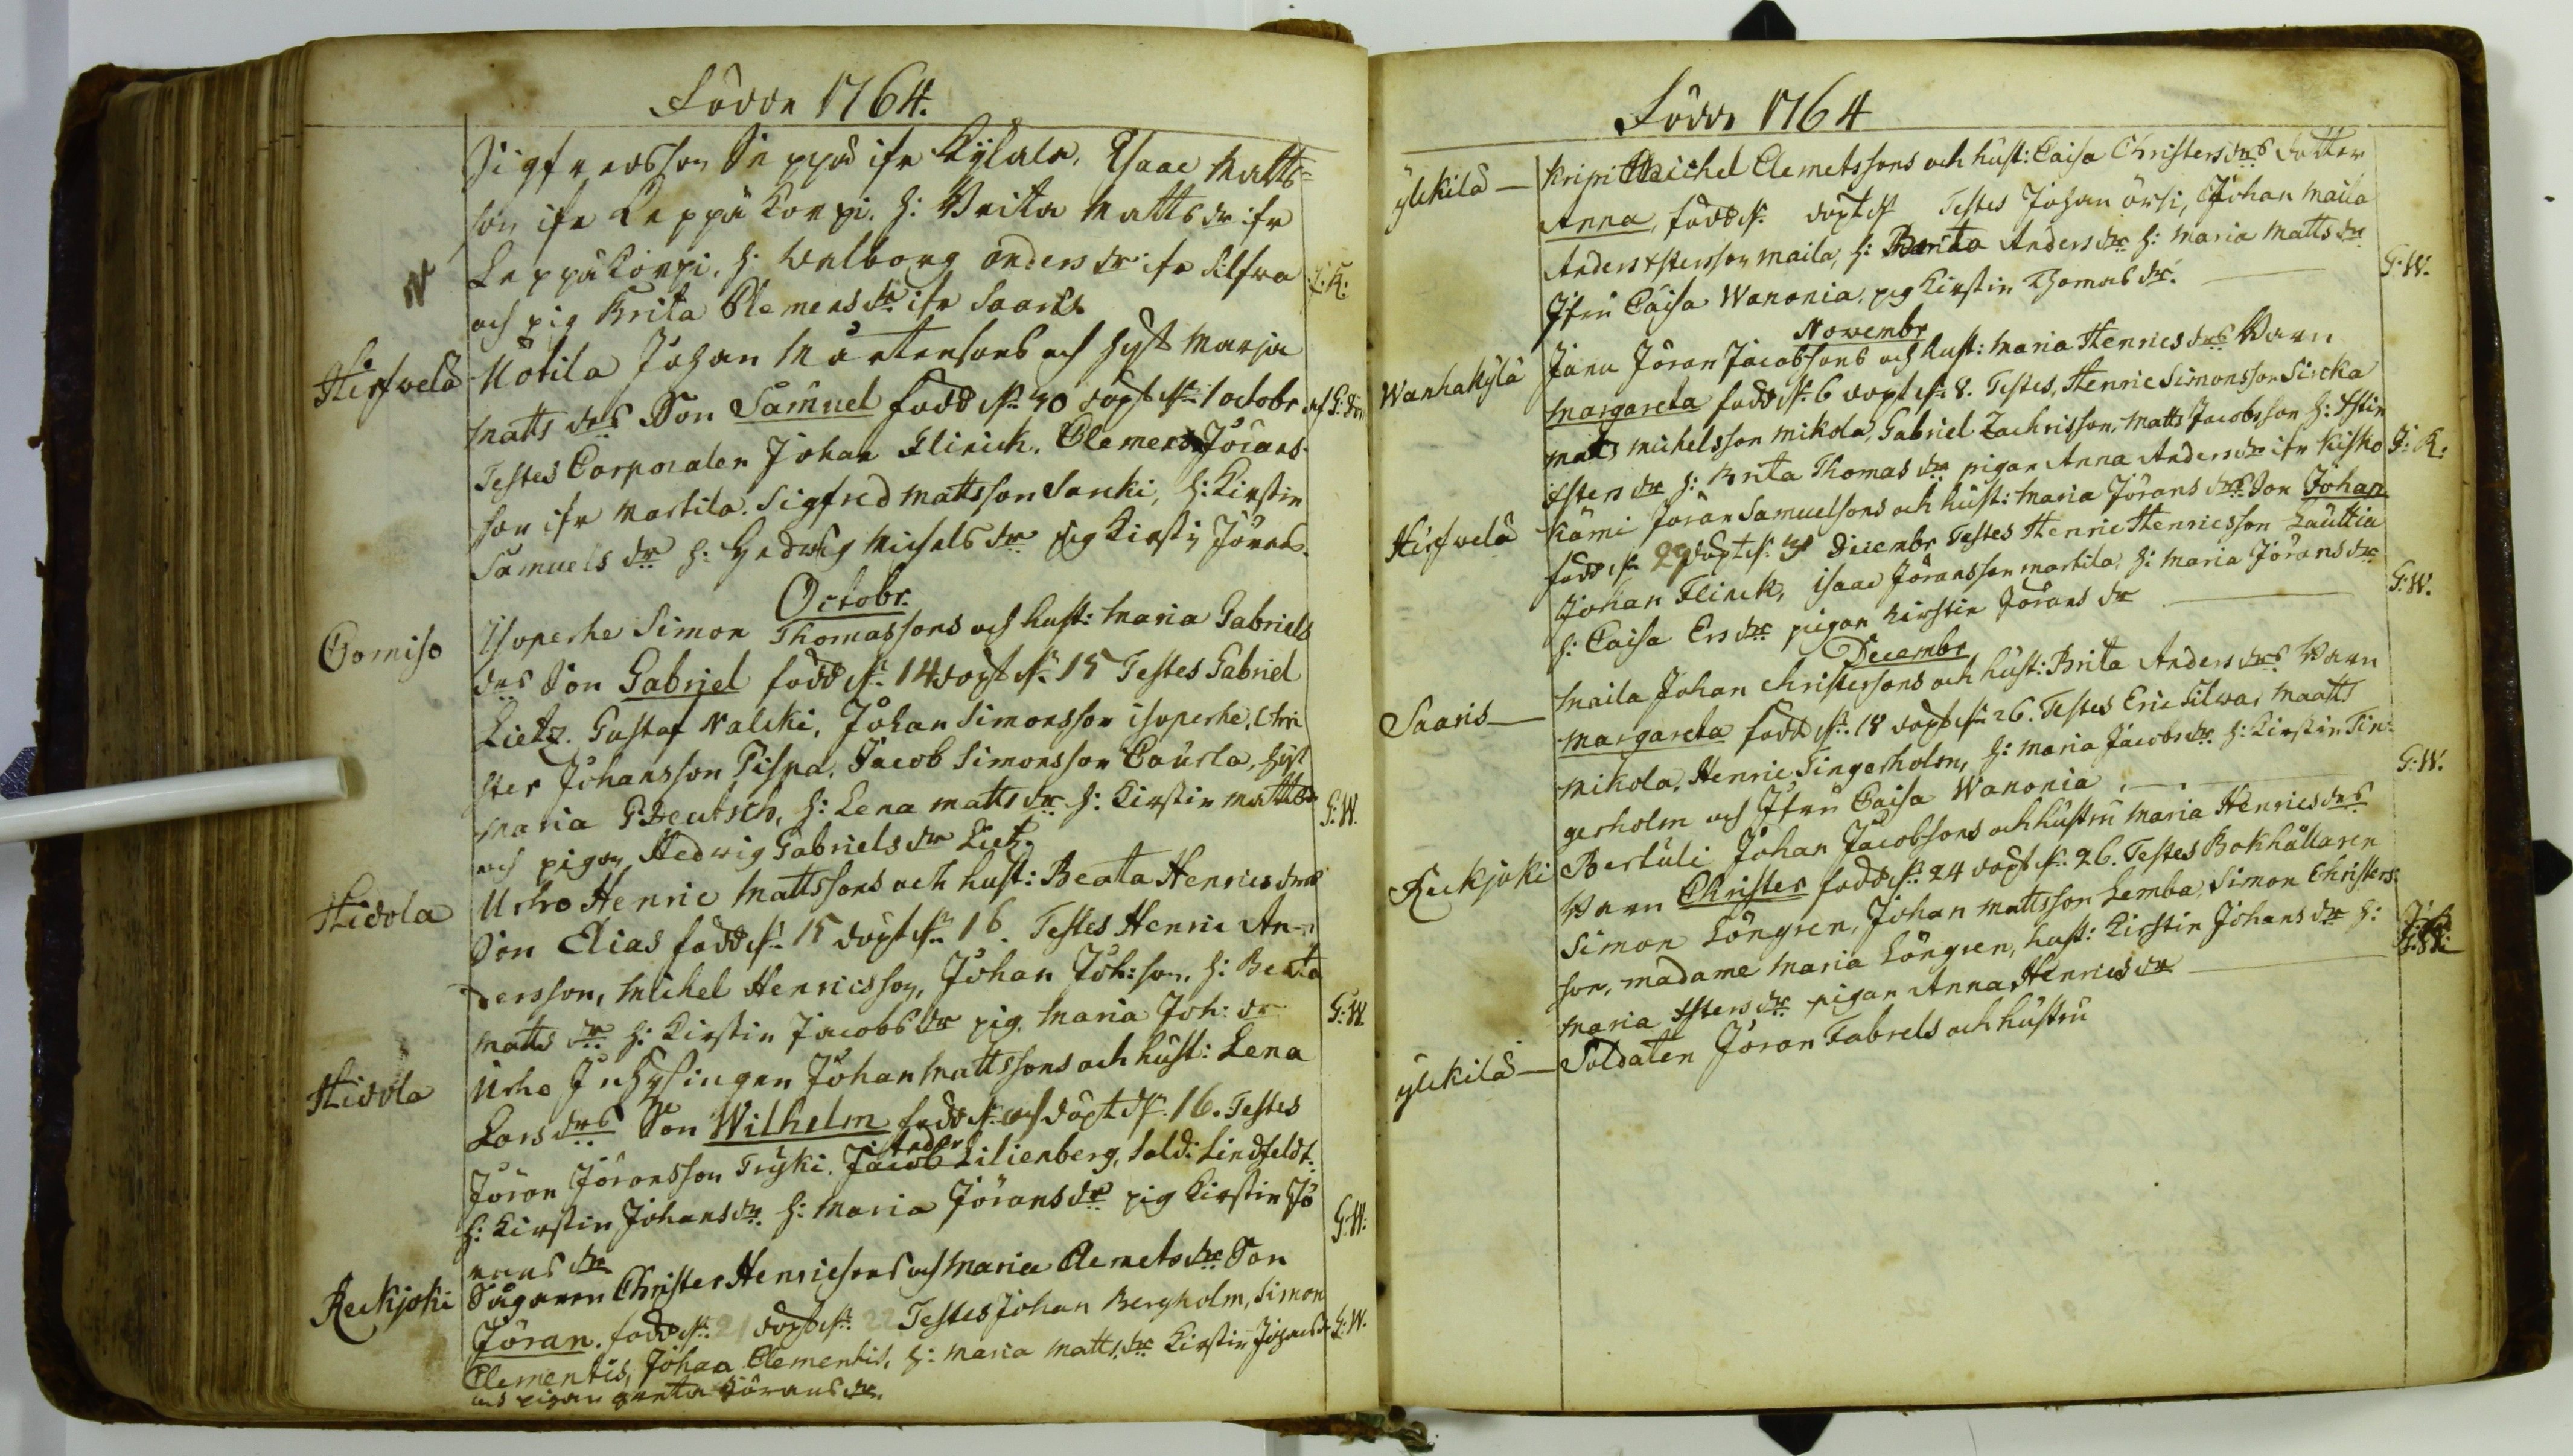 Födde 1764.
Sigfredsson Seppä ifr Kylälä, Isaac Matts=
son ifr Leppäkorpi. h: Brita Matts dr ifr
Leppäkorpi, h: Walborg Anders dr ifr Silfwa
och pig Brita Clemens dr ifr Saaris
Hirfwelä Uotila Johan Mårtensons och Hust Marja
Matts drs Son Samuel född d. 30 döpt d. 1 octobr
Testes Corporalen Johan Flinck. Clemens Jörans-
son ifr Martila. Sigfred Mattsson Sanki, h: Kirstin
Samuels dr h: Hedwig Michels dr pig Kirstin Jörans
Octobr.
Tomiso Isoperhe Simon Thomassons och hust: Maria Gabriels
drs Son Gabriel född d. 14 döpt d. 15 Testes Gabriel
Lietz. Gustaf Nalcki, Johan Simonsson isoperhe, Chri
ster Johansson Pispa, Jacob Simonsson Caurla, hust
Maria G Deutsch, h: Lena Matts dr h: Kirstin Matts dr G:W.
och pigan Hedwig Gabriels dr Lietz.
Hidola Urho Henric Mattssons och hust: Beata Henrics drs
Son Elias född d. 15 döpt d. 16. Testes Henric An-
dersson, Michel Henricsson, Johan Joh:son, h: Beata
Matts dr h: Kirstin Jacobs dr pig. Maria Joh: dr G:W.
Hidola Urho Inhysingen Johan Mattssons och hust: Lena
Lars drs Son Wilhelm född d. och döpt d. 16. Testes
Jöran Jöransson Tryki. Jacob Ander Lilienberg, Sold: Lindfeldt.
h: Kirstin Johans dr h: Maria Jörans dr pig Kirstin Jö
rans dr G:W.
Reckjoki Sågaren Christer Henricsons och Maria Clemets drs Son
Jöran. född d. 21 döpt d. 22 Testes Johan Bergholm, Simon
Clementis, Johan Clementis, h: Maria Matts dr Kirstin Johans dr G:W.
och pigan Greta Jörans dr.
Födde 1764
ylikilä Kripi Michel Clemetssons och hust: Caisa Christers drs Dotter
Anna, född d. döpt d. Testes Johan örsi, Johan Maila
Anders Xstersson Maila, h: Brita Anders dr h: Maria Matts dr
Jfru Caisa Wanonia. pig Kirstin Thomas dr. G:W.
Novembr
Wanhakylä Jänu Jöran Jacobssons och hust: Maria Henrics drs Barn
Margareta född d. 6 döpt d. 8. Testes, Henric Simonsson Sircka
Matts Michelsson Mikola, Gabriel Zachrisson, Matts Jacobsson h: Xstin
Xsters dr h: Brita Thomas dr pigan Anna Anders dr ifr Kisko J:K:
Hirfwelä Kämi Jöran Samuelsons och hust: Maria Jörans drs Son Johan
född d. 29 döpt d. 3 Decembr Testes Henric Henricsson Lauttia
Johan Flinck, isaac Jöransson Martila, h: Maria Jörans dr
h: Caisa Ers dr pigan Kirstin Jörans dr G:W.
Decembr
Saaris Maila Johan Christersons och hust: Brita Anders drs Barn
Margareta född d. 18 döpt d. 26. Testes Eric Silwa, Maatts
Mikola, Henric Tingerholm, h: Maria Jacobs dr h: Kirstin Tin-
gerholm och Jfru Caisa Wanonia G:W.
Reckjoki Bertuli Johan Jacobsons och hustru Maria Henrics drs
Barn Christer född d. 24 döpt d. 26. Testes Bokhållaren
Simon Löngren, Johan Mattsson Lemba, Simon Christers-
son, Madame Maria Löngren, hust: Kirstin Johans dr h:
Maria Xsters dr pigan Anna Henrics dr G:W:
ylikilä Soldaten Jöran Fabrels och hustru